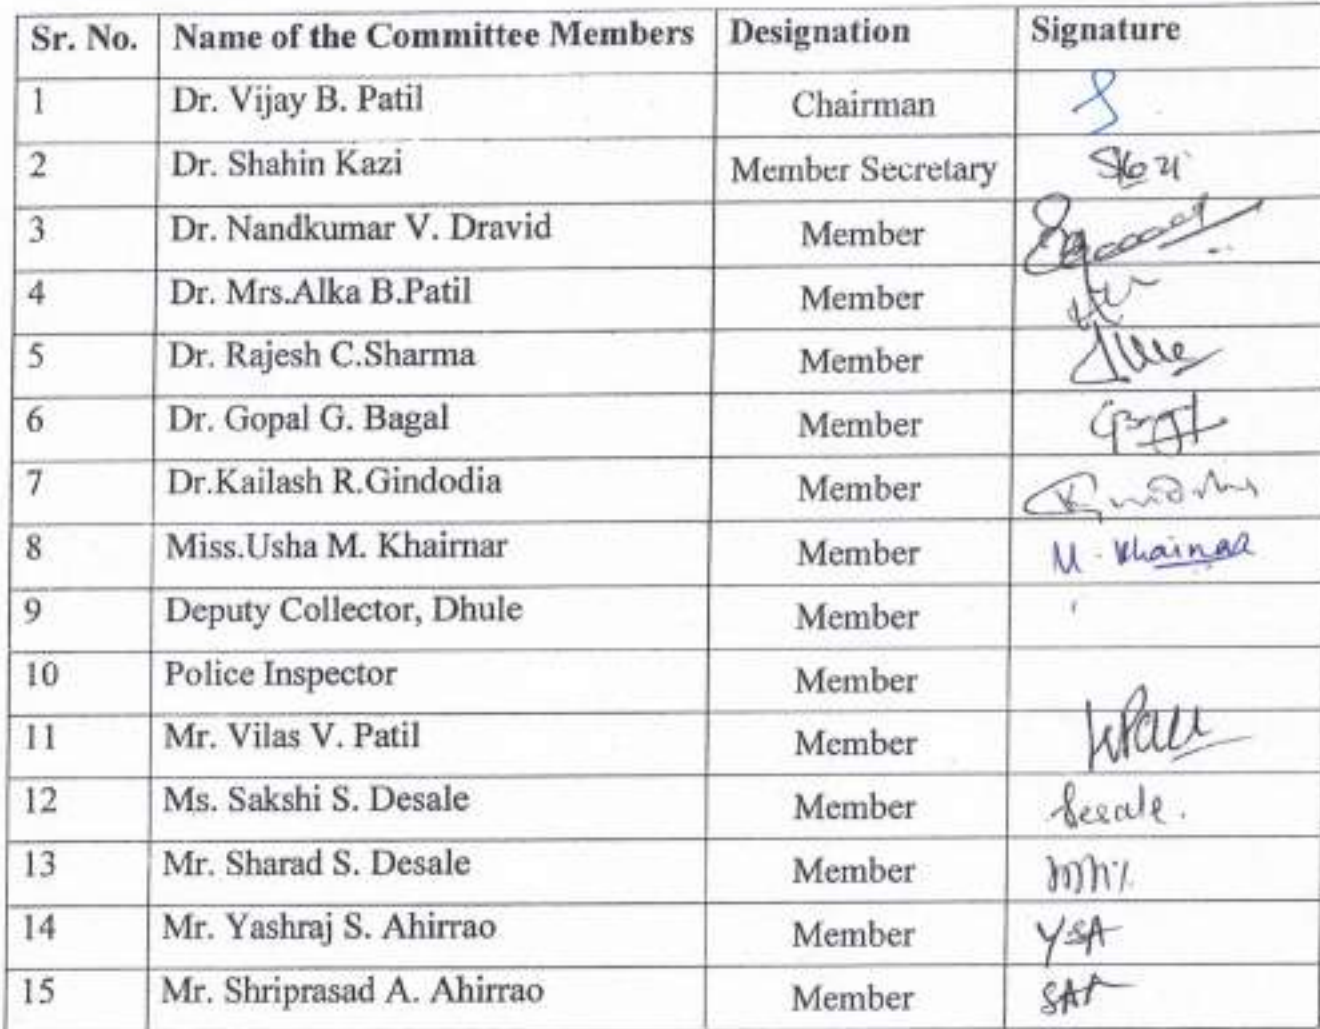 Sr. No. Name of the Committee Members Designation Signature
1 Dr. Vijay B. Patil Chairman
2 Dr. Shahin Kazi Member Secretary
3 Dr. Nandkumar V. Dravid Member
4 Dr. Mrs.Alka B.Patil Member
5 Dr. Rajesh C.Sharma Member
6 Dr. Gopal G. Bagal Member
7 Dr.Kailash R.Gindodia Member
8 Miss.Usha M. Khairnar Member
9 Deputy Collector, Dhule Member
10 Police Inspector Member
11 Mr. Vilas V. Patil Member
12 Ms. Sakshi S. Desale Member
13 Mr. Sharad S. Desale Member
14 Mr. Yashraj S. Ahirrao Member YSA
15 Mr. Shriprasad A. Ahirrao Member SAA